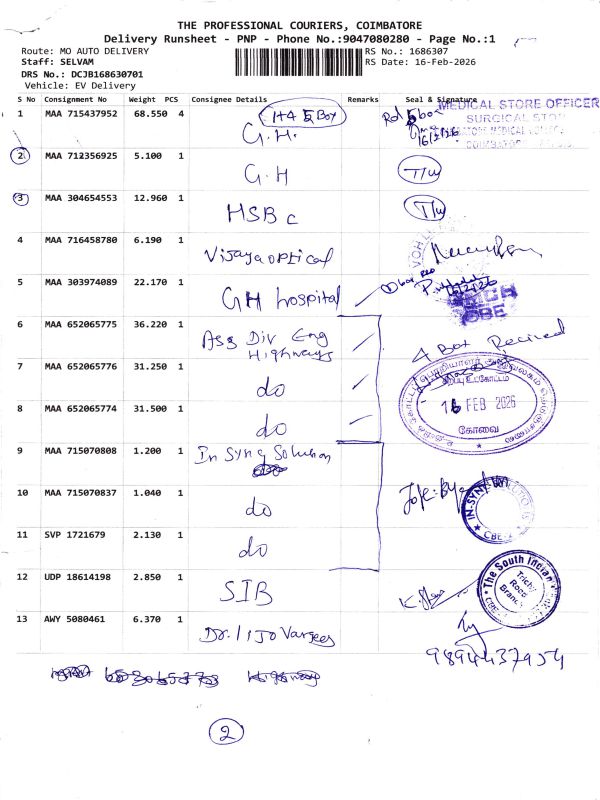 THE PROFESSIONAL COURIERS, COIMBATORE
Delivery Runsheet - PNP - Phone No.:9047080280 - Page No.:1
Route: MO AUTO DELIVERY
RS No.: 1686307
Staff: SELVAM
RS Date: 16-Feb-2026
DRS No.: DCJB168630701
Vehicle: EV Delivery
S No Consignment No Weight PCS Consignee Details Remarks Seal & Signature
1+4 5 Box
MEDICAL STORE OFFICER
1 MAA 715437952 68.550 4 G.H.
SURGICAL STORE
2 MAA 712356925 5.100 1 G.H T/W
3 MAA 304654553 12.960 1 HSBC T/W
4 MAA 716458780 6.190 1 Vijaya optical
5 MAA 303974089 22.170 1 GH hospital
6 MAA 652065775 36.220 1 Ass Div Eng
Highways
4 Box Recived
7 MAA 652065776 31.250 1 do
8 MAA 652065774 31.500 1 do
16 FEB 2026
கோவை
9 MAA 715070808 1.200 1 In Sync Solution
10 MAA 715070837 1.040 1 do
11 SVP 1721679 2.130 1 do
12 UDP 18614198 2.850 1 SIB
The South Indian
Trichy
Road
Branch
13 AWY 5080461 6.370 1 Dr. Lijo Vargees
9894437954
2